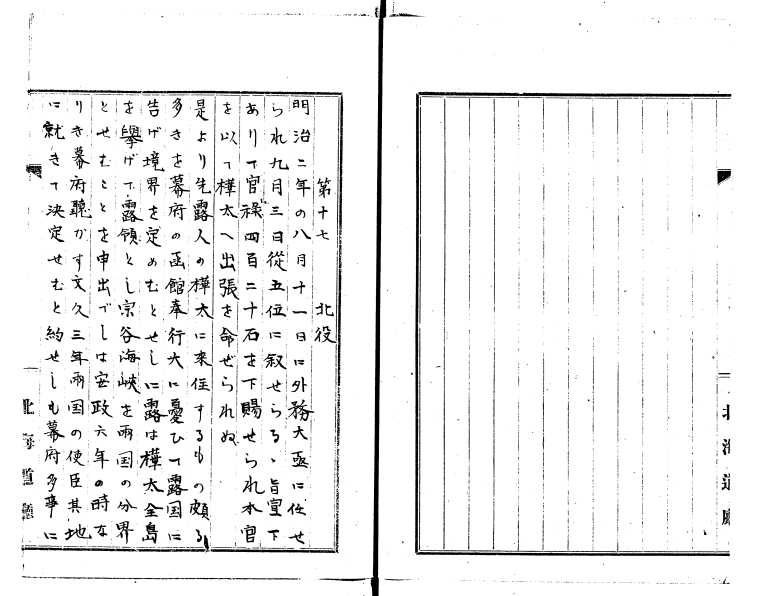 北海道廳
第十七　北役
明治二年の八月十一日に外務大丞に任せ
られ九月三日從五位に叙せらるゝ旨宣下
ありて官祿四百二十石を下賜せられ本官
を以て樺太へ出張を命ぜられぬ
是より先露人の樺太に來住するもの頗る
多きを幕府の函館奉行大に憂ひて露国に
告げ境界を定めむとせしに露は樺太全島
を擧げて露領とし宗谷海峽を兩国の分界
とせむことを申出でしは安政六年の時な
りき幕府聽かす文久三年兩国の使臣其地
に就きて決定せむと約せしも幕府多事に
北海道廳